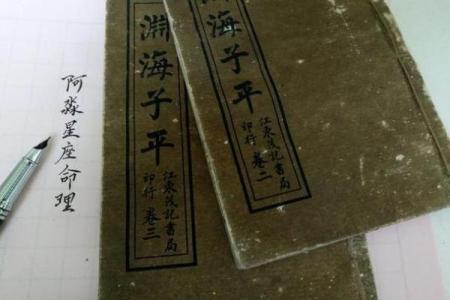 阿淼星座命理
淵海子平
江東茂記書局
印行 卷三
海子平
江東茂記書局
印行 卷二